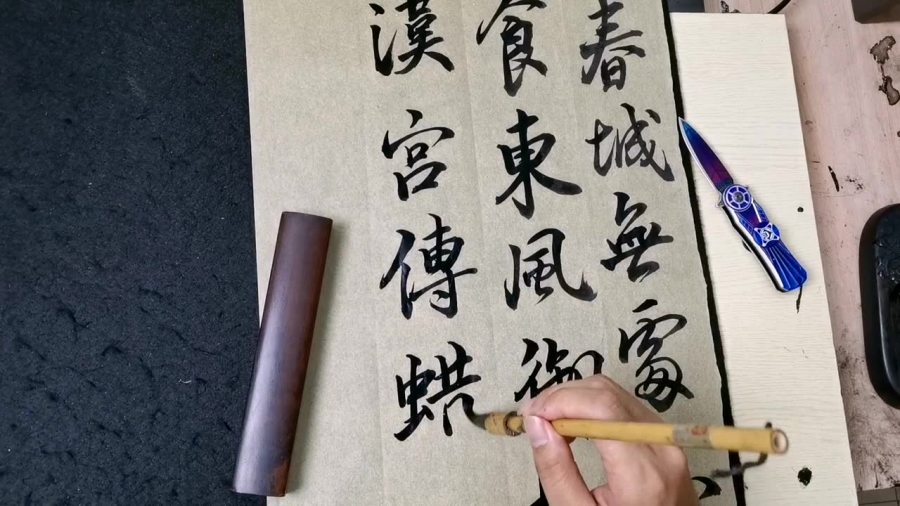 春城無處
食東風御
漢宮傳